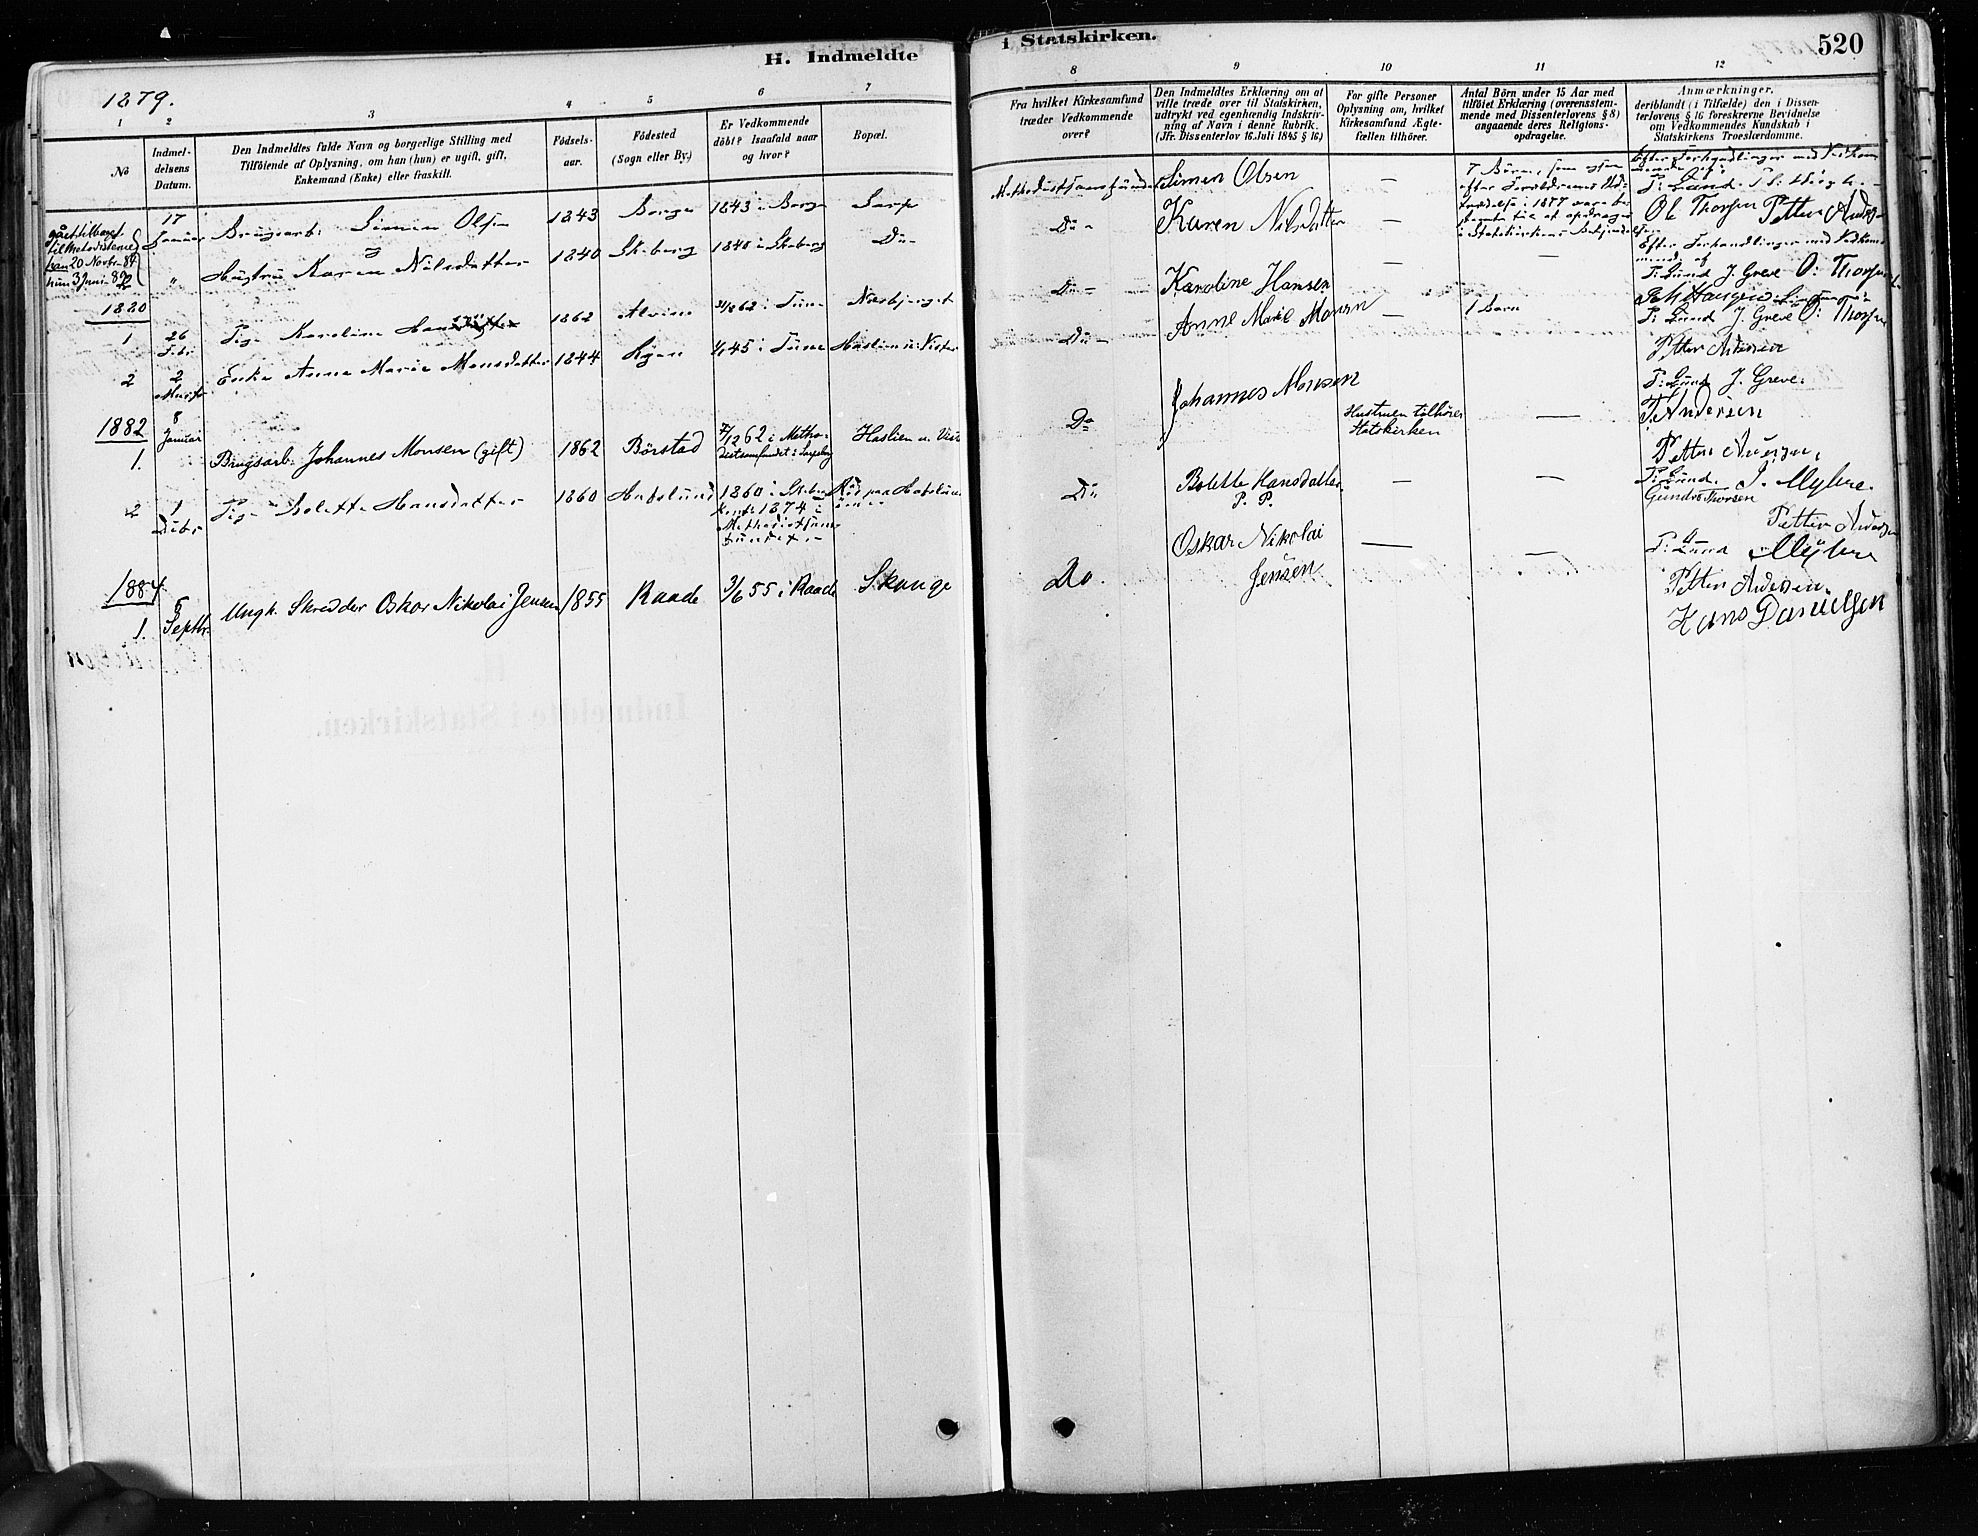 H. Indmeldte
1879.
1
2
3
4
5
6
7
No
Indmel-
delsens
Datum.
Den Indmeldtes fulde Navn og borgerlige Stilling med
Tilföiende af Oplysning, om han (hun) er ugift, gift,
Enkemand (Enke) eller fraskilt.
Födsels-
aar.
Födested
(Sogn eller By.)
Er Vedkommende
döbt? Isaafald naar
og hvor?
Bopæl.
gået tilbage
til Metodisterne
han 20 Novbr. 84
hun 3 Juni 89
17
Januar
Brugsarb. Simen Olsen
1843
Borge
1843 i Borge
Sarp
"
Hustru Karen Nilsdatter
1840
Skeberg
1840 i Skeberg
Do
1880
1
26
Febr.
Pige Karoline Hansdatter
1862
i Tune
2
2
Marts
Enke Anne Marie Monsdatter
1844
i Tune
1882
1.
8
Januar
Brugsarb. Johannes Monsen (gift)
1862
Börstad
7/12 62 i Metho-
distsamfundet i Sarpsborg
Haslien u. Vister
2
1
Pige Bolette Hansdatter
1860
Hafslund
1860 i Skeberg
Konf. 1874 i
Methodistsam-
fundet.
1884
1.
5
Septbr.
Ungk. Skredder Oskar Nikolai Jensen
1855
Raade
3/6 55 i Raade
i Statskirken.
520
8
9
10
11
12
Fra hvilket Kirkesamfund
træder Vedkommende
over?
Den Indmeldtes Erklæring om at
ville træde over til Statskirken,
udtrykt ved egenhændig Indskriv-
ning af Navn i denne Rubrik.
(Jfr. Dissenterlov 16 Juli 1845 § 16)
For gifte Personer
Oplysning om, hvilket
Kirkesamfund Ægte-
fællen tilhörer.
Antal Börn under 15 Aar med
tilföiet Erklæring (overensstem-
mende med Dissenterlovens § 8)
angaaende deres Religions-
opdragelse.
Anmærkninger,
deriblandt (i Tilfælde) den i Dissen-
terlovens § 16 foreskrevne Bevidnelse
om Vedkommendes Kundskab i
Statskirkens Troeslærdomme.
Methodistsamfundet
Simen Olsen
—
7 Börn, som
efter Forældrenes
i 1877
til at opdrages
i Statskirkens Bekjendelse
Efter Forhandlinger med Vedkom-
mende af
P. Lund
Ol. Thorsen Petter Anders
Do
Karen Nilsdatter
—
Efter Forhandlinger med Vedkom-
mende af
P. Lund J. Greve O. Thorsen
Do
Karoline Hansen
—
—
Do
Anne Marie Monsen
—
1 Barn
P. Lund J. Greve O. Thorsen
Petter Andersen
Do
Johannes Monsen
Hustruen tilhörer
Statskirken
—
P. Lund J. Greve.
P. Andersen
Do
Bolette Hansdatter
P. P.
—
—
P. Lund. J. Myhre.
Gunder Thorsen
Petter Andersen
Do.
Oskar Nikolai
Jensen
—
—
P. Lund Myhre
Petter Andersen
Hans Danielsen
Indmeldte i Statskirken.